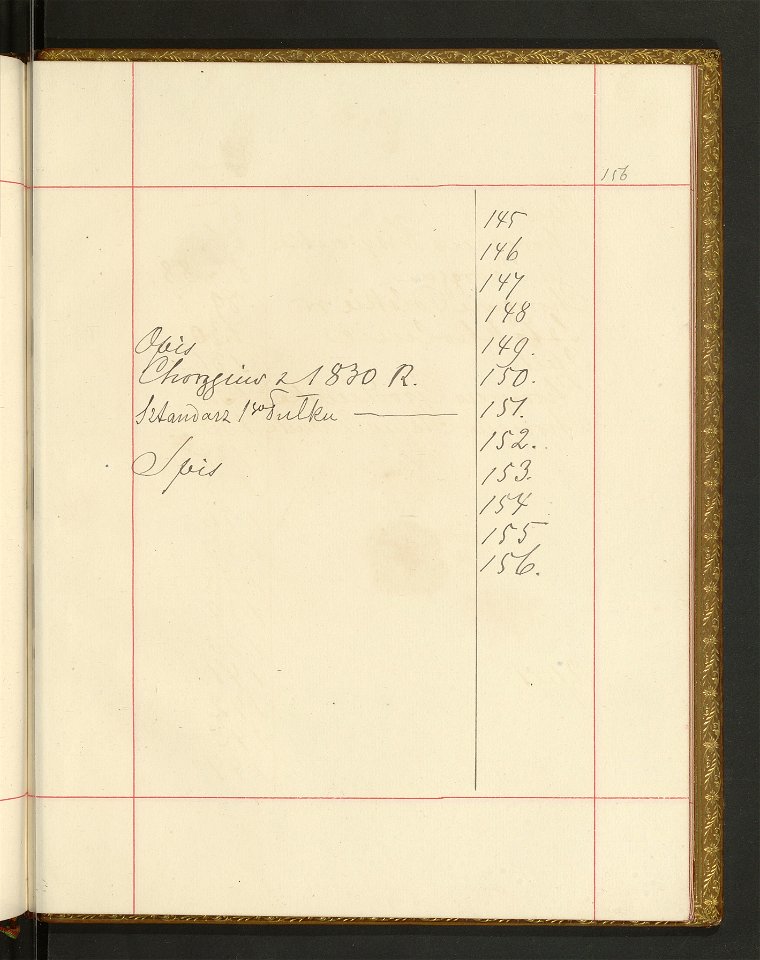 156
145
146
147
148
Opis 149.
Chorągiew z 1830 R. 150.
Sztandarz 1go Pułku 151.
152.
Spis 153.
154
155
156.